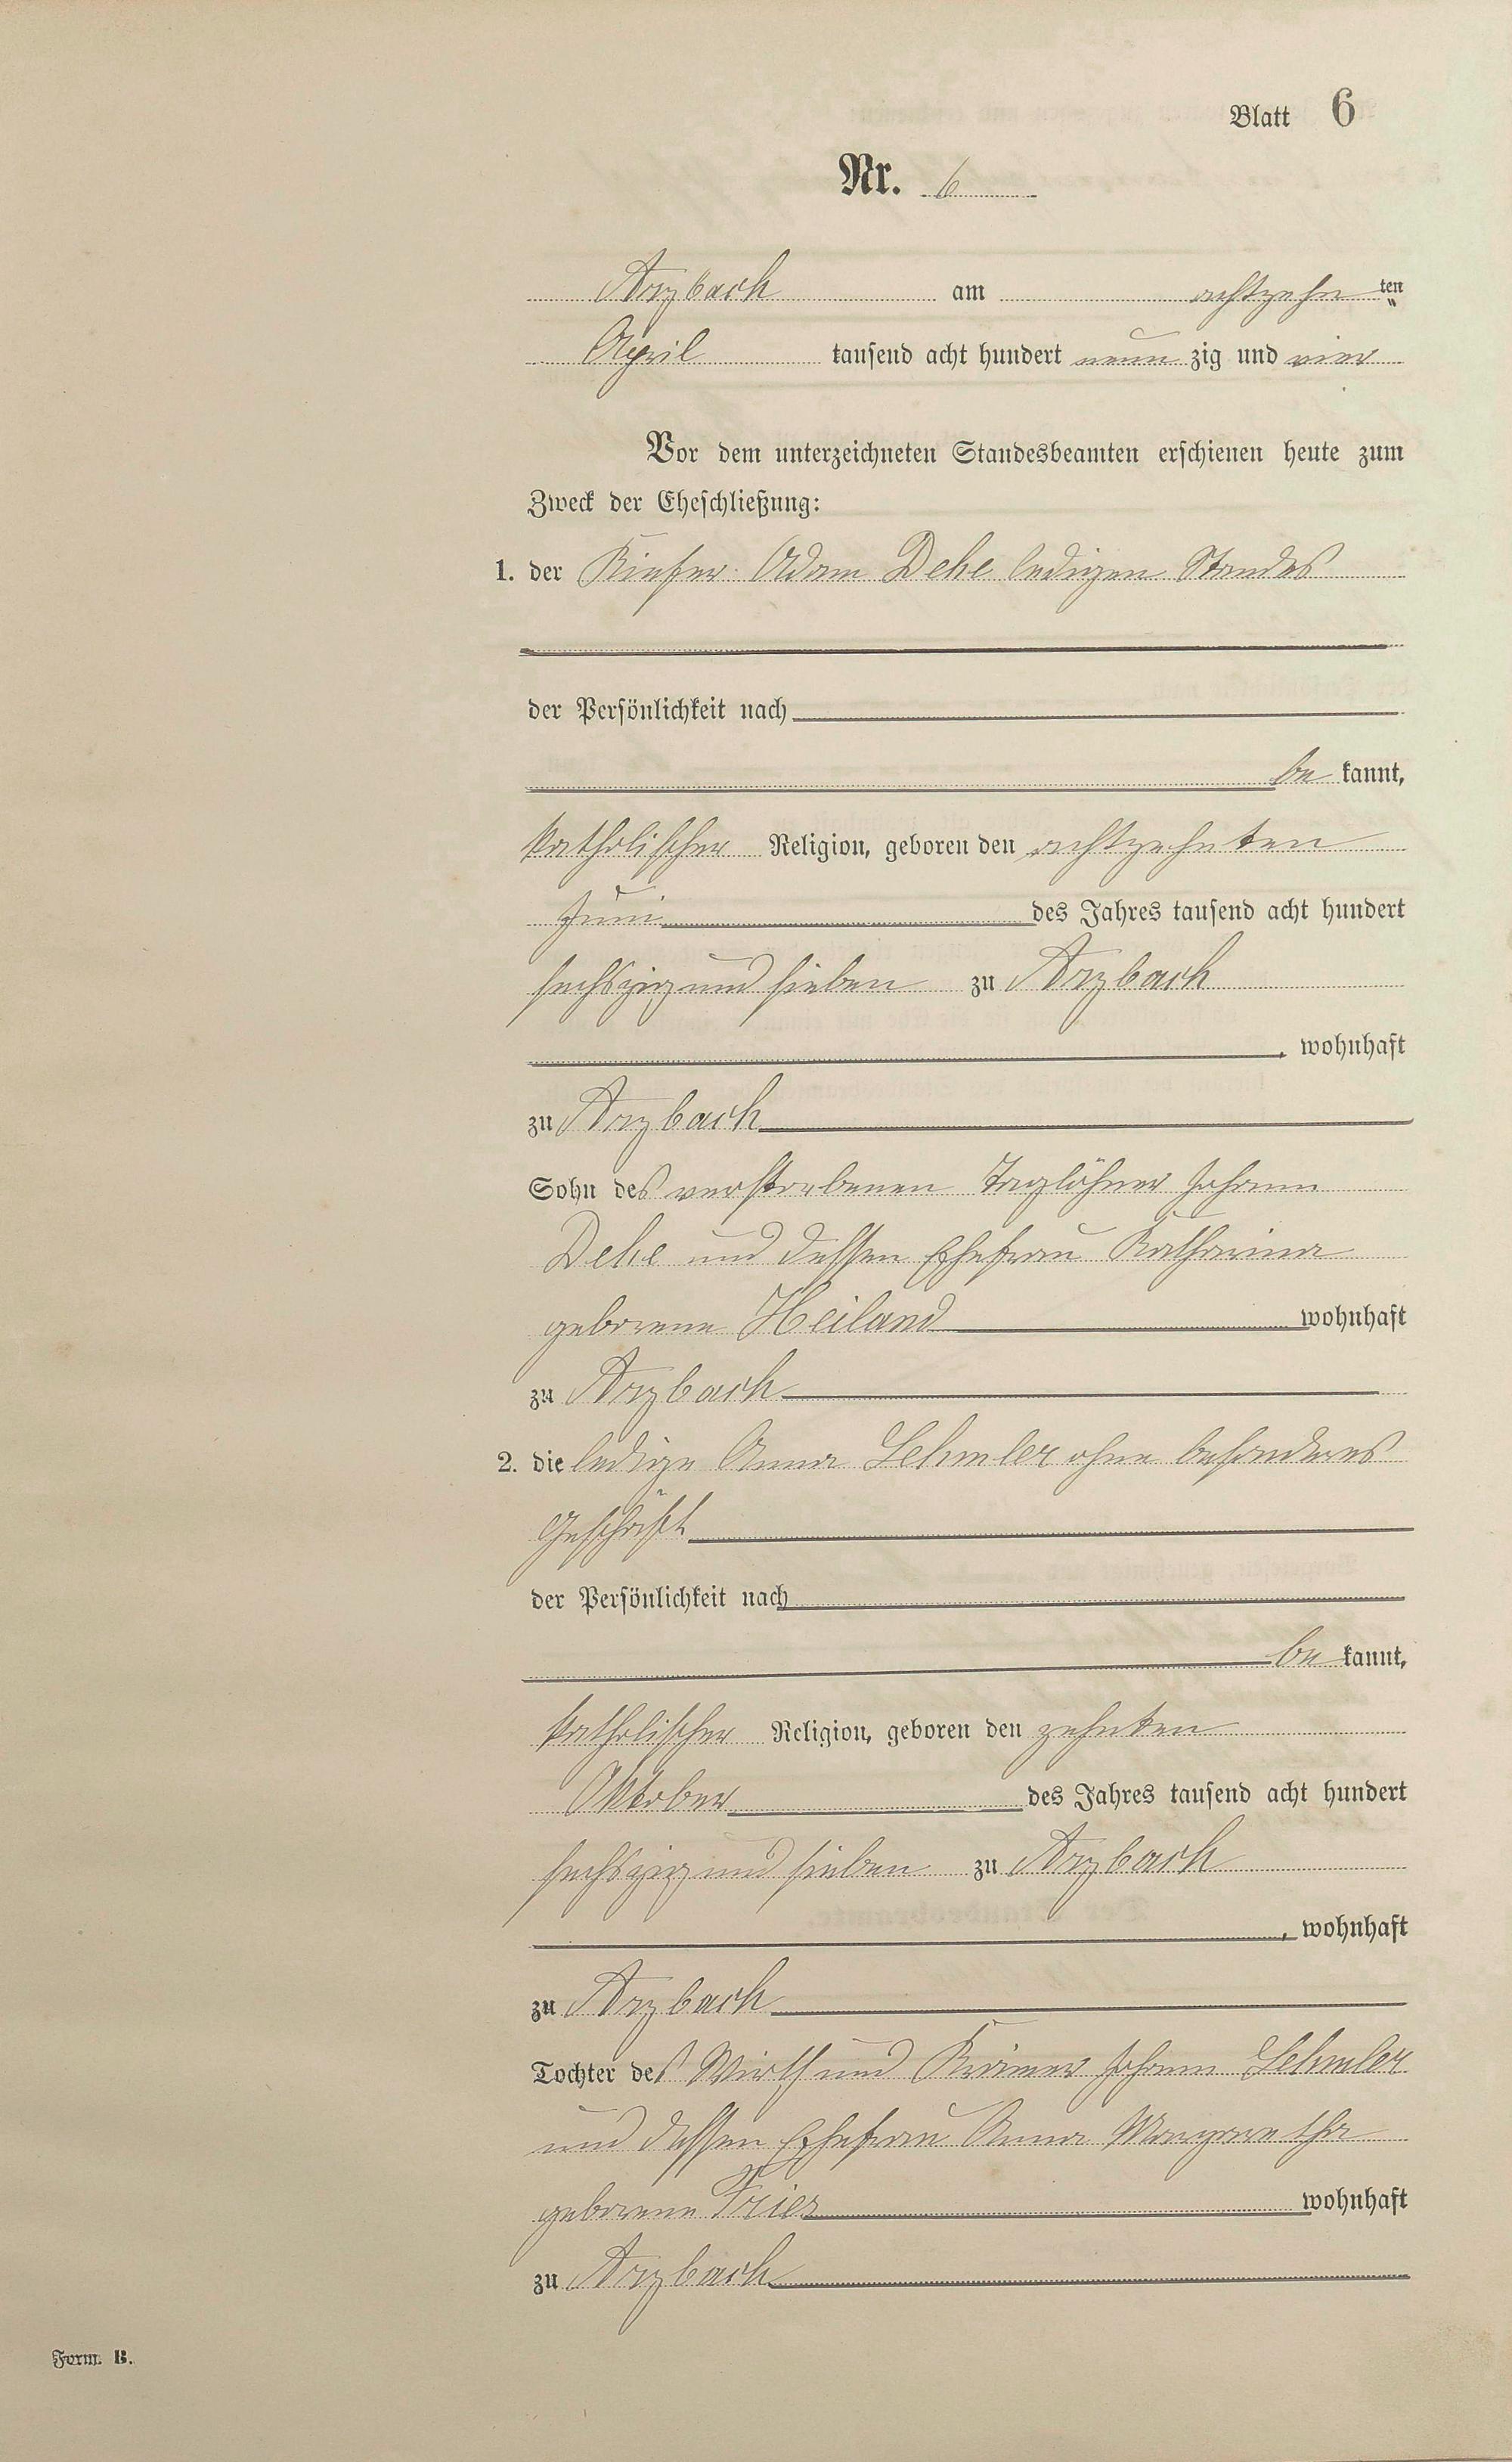 Blatt 6
Nr. 6
Arzbach am achtzehn ten
April tausend acht hundert neun zig und vier
Vor dem unterzeichneten Standesbeamten erschienen heute zum
Zweck der Eheschließung:
1. der Küfer Adam Dehe ledigen Standes
der Persönlichkeit nach
be kannt,
katholischer Religion, geboren den achtzehnten
Juni des Jahres tausend acht hundert
sechszig und sieben zu Arzbach
, wohnhaft
zu Arzbach
Sohn des verstorbenen Taglöhner Johann
Dehe und dessen Ehefrau Katharina
geborene Heiland wohnhaft
zu Arzbach
2. die ledige Anna Lehmler ohne besonderes
Geschäft
der Persönlichkeit nach
be kannt,
katholischer Religion, geboren den zehnten
Oktober des Jahres tausend acht hundert
sechszig und sieben zu Arzbach
, wohnhaft
zu Arzbach
Tochter des Wirth und Krämer Johann Lehmler
und dessen Ehefrau Anna Margaretha
geborene Fries wohnhaft
zu Arzbach
Form. B.